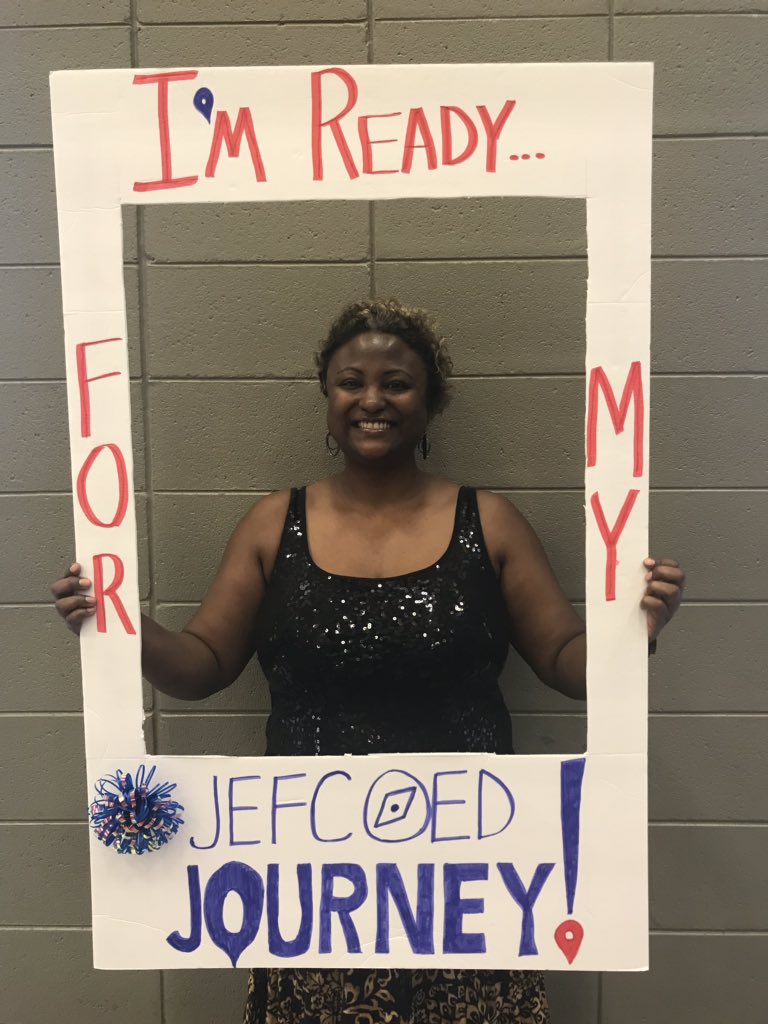 I'm READY...
FOR
MY
JEFCOED
JOURNEY!